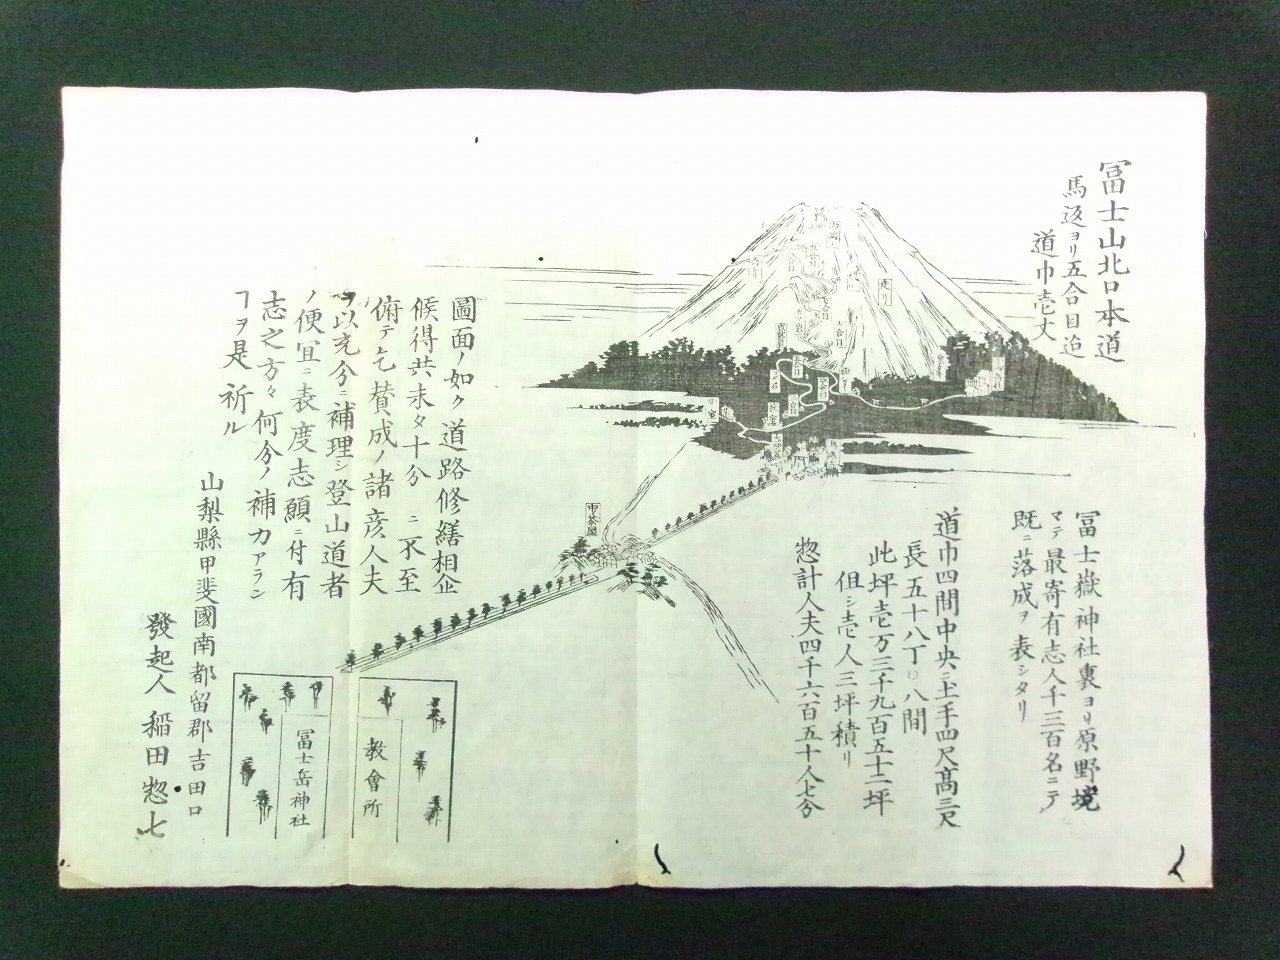 冨士山北口本道
馬返ヨリ五合目迠
道巾壱丈
冨士嶽神社裏ヨリ原野境
マデ最寄有志人千三百名ニテ
既ニ落成ヲ表シタリ
道巾四間中央ニ土手四尺髙三尺
長五十八丁〇八間
此坪壱万三千九百五十二坪
但シ壱人三坪積リ
惣計人夫四千六百五十人七分
圖面ノ如ク道路修繕相企
候得共未タ十分ニ不至
俯テ乞賛成ノ諸彦人夫
ヲ以充分ニ補理シ登山道者
ノ便宜ニ表度志願ニ付有
志之方々何分ノ補力アラン
ヿヲ是祈ル
山梨縣甲斐國南都留郡吉田口
發起人稲田惣七
中茶屋
走リ
五合目
教會所
冨士岳神社